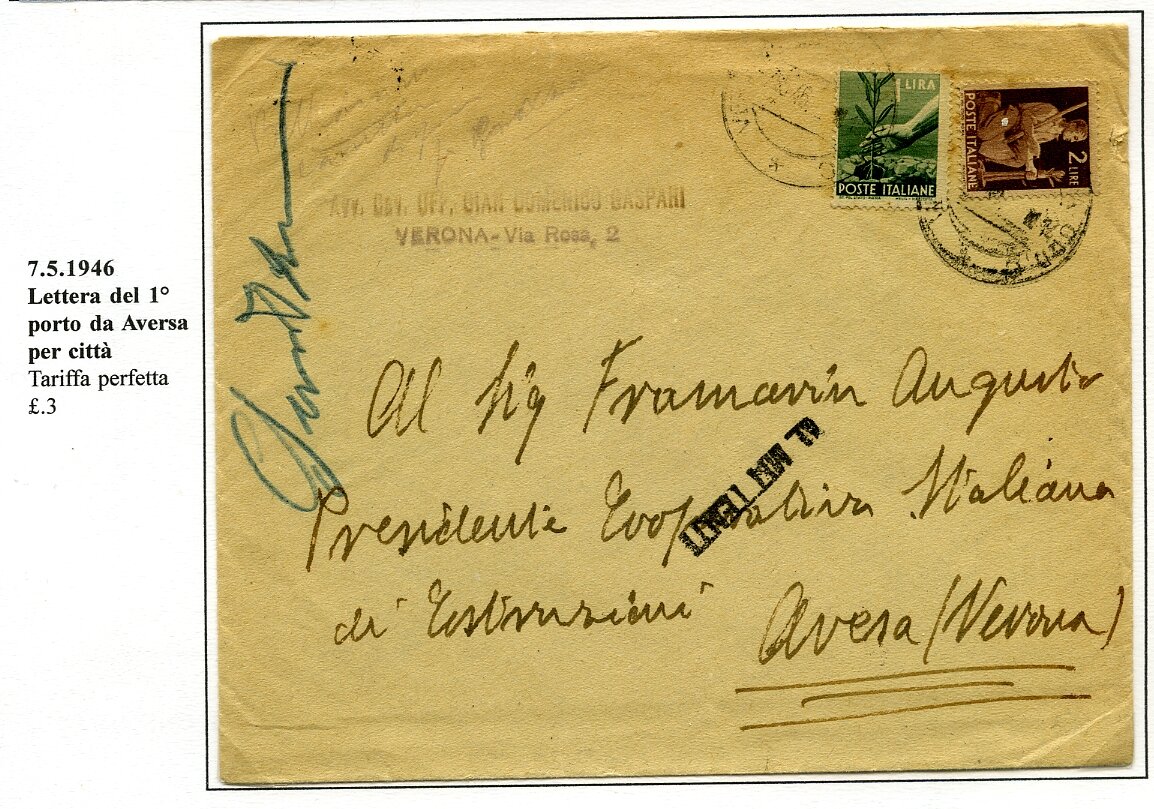 7.5.1946
Lettera del 1°
porto da Aversa
per città
Tariffa perfetta
£.3
1 LIRA
POSTE ITALIANE
2 LIRE
POSTE ITALIANE
Avv. Cav. Uff. GIAN DOMENICO GASPARI
VERONA - Via Rosa, 2
Al Sig Framarin Augusto
AL MITTENTE
Presidente Cooperativa Italiana
di Costruzioni
Avesa (Verona)